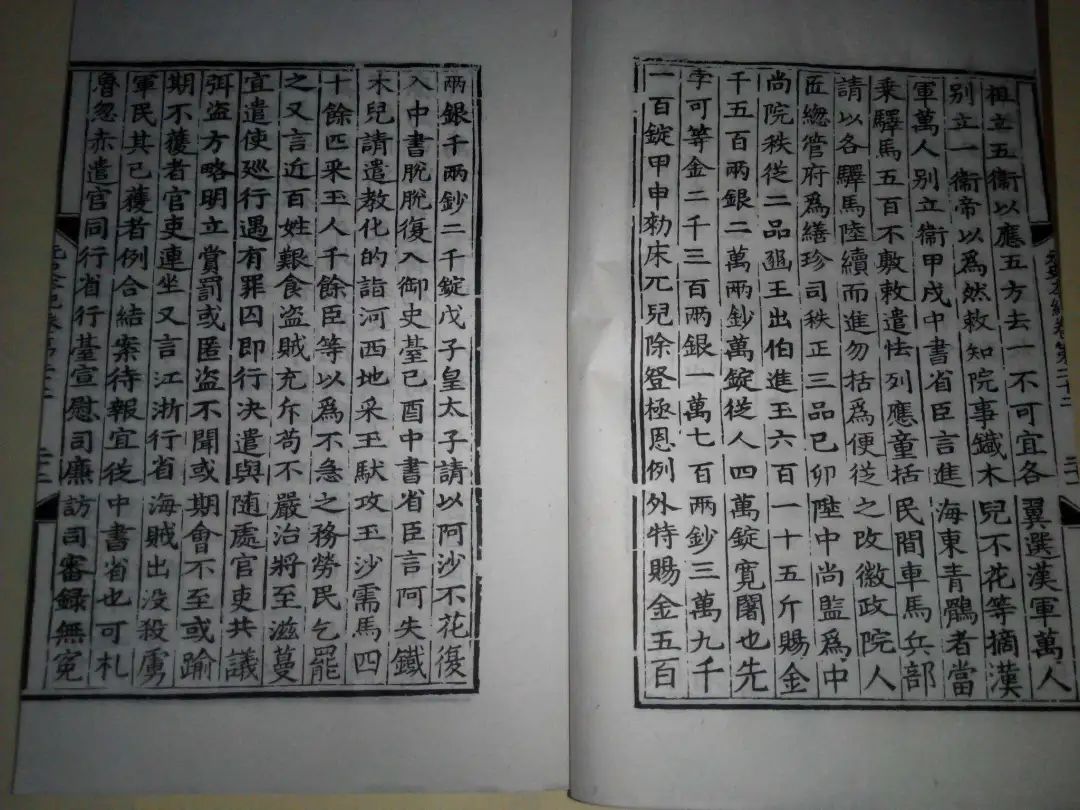 祖立五衞以應五方去一不可宜各翼選漢軍萬人
别立一衞帝以爲然敕知院事鐵木兒不花等摘漢
軍萬人别立衞甲戌中書省臣言進海東青鶻者當
乘驛馬五百不敷敕遣怯列應童括民間車馬兵部
請以各驛馬陸續而進勿括爲便從之改徽政院人
匠緫管府爲繕珍司秩正三品己卯陞中尚監爲中
尚院秩從二品越王出伯進玉六百一十五斤賜金
千五百兩銀二萬兩鈔萬錠從人四萬錠寛闍也先
孛可等金二千三百兩銀一萬七百兩鈔三萬九千
一百錠甲申勑床兀兒除登極恩例外特賜金五百
兩銀千兩鈔二千錠戊子皇太子請以阿沙不花復
入中書脱脱復入御史臺己酉中書省臣言阿失鐵
木兒請遣教化的詣河西地采玉馱攻玉沙需馬四
十餘匹采玉人千餘臣等以爲不急之務勞民乞罷
之又言近百姓艱食盗賊充斥苟不嚴治將至滋蔓
宜遣使廵行遇有罪囚即行决遣與随處官吏共議
弭盗方略明立賞罰或匿盗不聞或期會不至或踰
期不獲者官吏連坐又言江浙行省海賊出没殺虜
軍民其已獲者例合結案待報宜從中書省也可札
魯忽赤遣官同行省行臺宣慰司廉訪司審録無寃